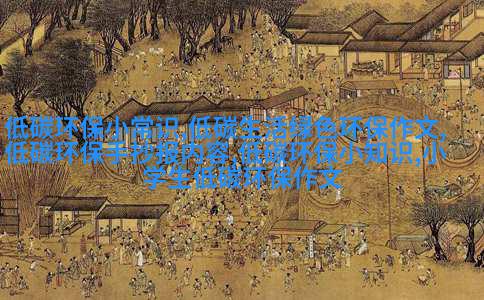 低碳环保小常识,低碳生活绿色环保作文,
低碳环保手抄报内容,低碳环保小知识,小
学生低碳环保作文